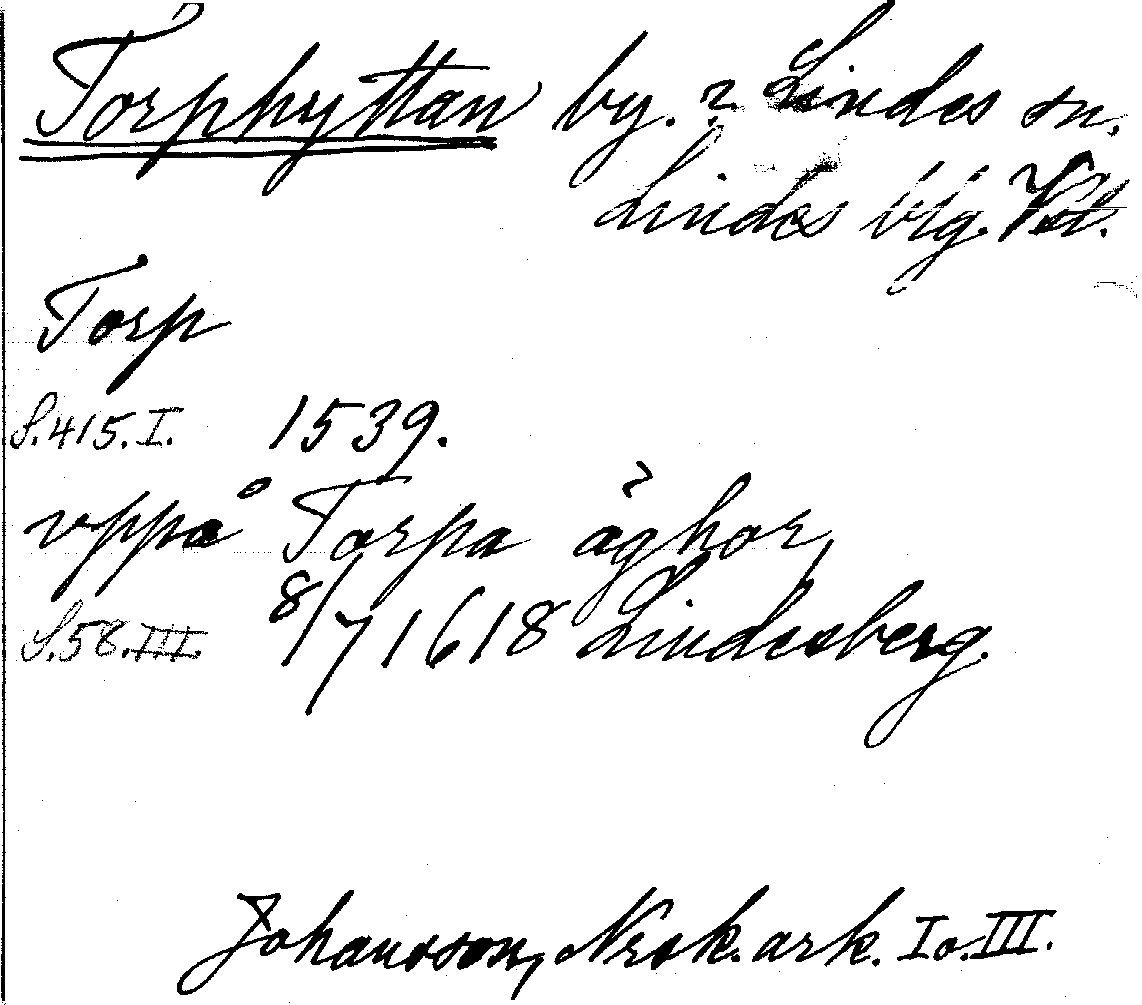 Torphyttan by. ? Lindes sn.
Lindes blg. Vstl.
Torp
S.415.I. 1539.
vppå Torpa ághor,
S.58.III. 8/7 1618 Lindesberg.
Johansson, Norsk. ark. I o. III.